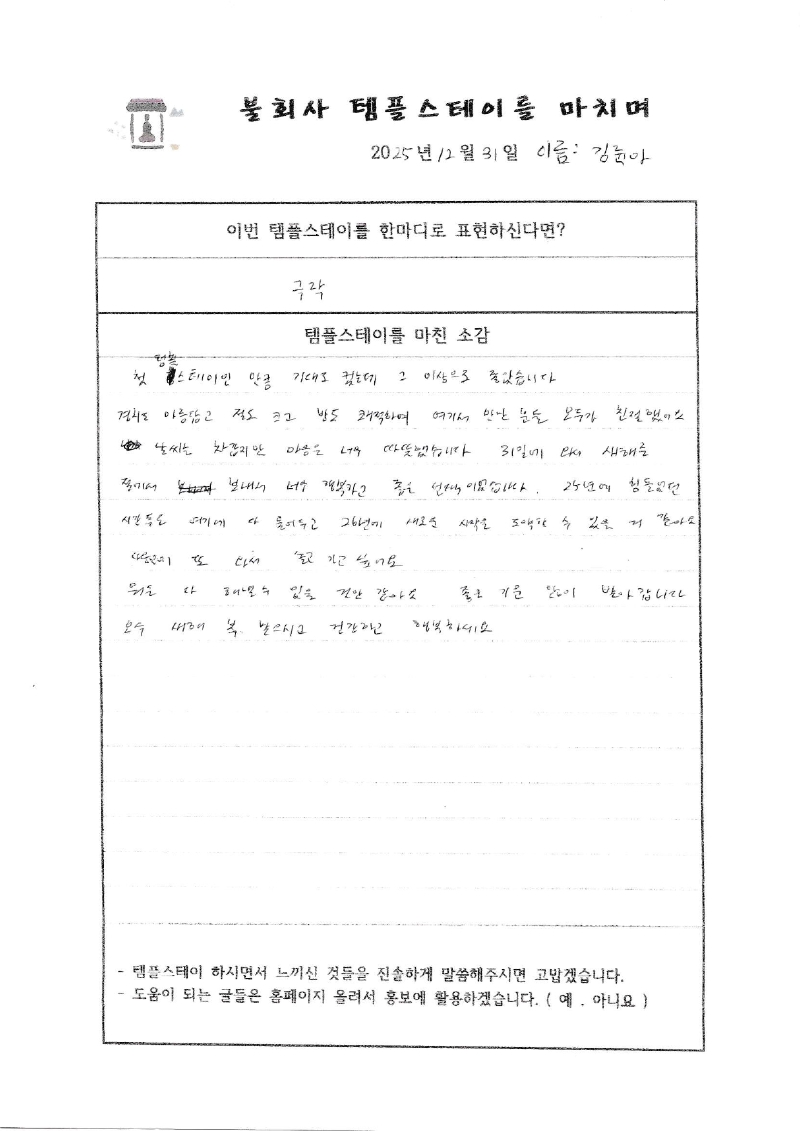 불회사 템플스테이를 마치며
2025년 12월 31일 이름: 김륜아
이번 템플스테이를 한마디로 표현하신다면?
극락
템플스테이를 마친 소감
첫 템플스테이인 만큼 기대도 컸는데 그 이상으로 좋았습니다
경치도 아름답고 절도 크고 방도 쾌적하며 여기서 만난 분들 모두가 친절했어요
날씨는 차갑지만 마음은 너무 따뜻했습니다 31일에 와서 새해를
절에서 보내서 너무 행복하고 좋은 선택이었습니다. 25년에 힘들었던
시간들도 여기에 다 놓어두고 26년에 새로운 시작을 도약할 수 있을 거 같아요
또 와서 쉬고 가고 싶어요
뭐든 다 해낼 수 있을 것만 같아요 좋은 기운 많이 받아 갑니다
모두 새해 복 많으시고 건강하고 행복하세요
- 템플스테이 하시면서 느끼신 것들을 진솔하게 말씀해주시면 고맙겠습니다.
- 도움이 되는 글들은 홈페이지 올려서 홍보에 활용하겠습니다. ( 예 . 아니요 )